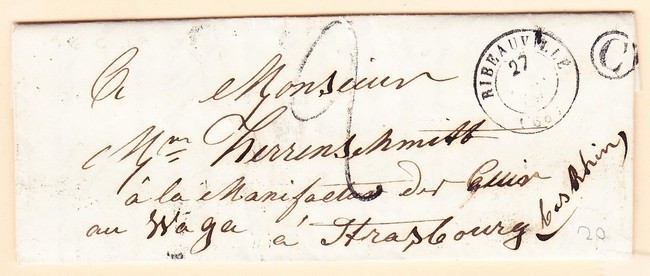 RIBEAUVILLÉ
27
(66)
C
2
A Monsieur
Mm Herrenschmitt
à la Manifacture des Cuir
au Waga à Strasbourg
bas Rhin
20